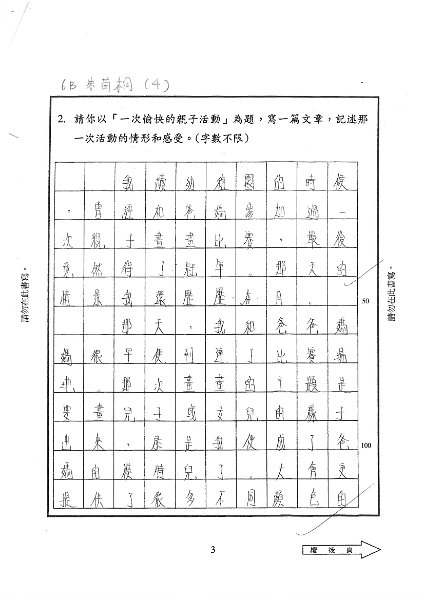 6B 朱茵桐 (4)
2. 請你以「一次愉快的親子活動」為題，寫一篇文章，記述那
一次活動的情形和感受。(字數不限)
我讀幼稚園的時候
，曾經和爸媽參加過一
次親子畫畫比賽，最後
竟然得了冠軍。那天的
情景我還歷歷在目。
那天，我和爸爸媽
媽很早便到達了比賽場
地。那次畫畫的主題是
要畫兒子或女兒的樣子
出來，於是我便成了爸
媽的模特兒了。大會更
提供了很多不同顏色的
50
100
請勿在此書寫。
請勿在此書寫。
3
續後頁